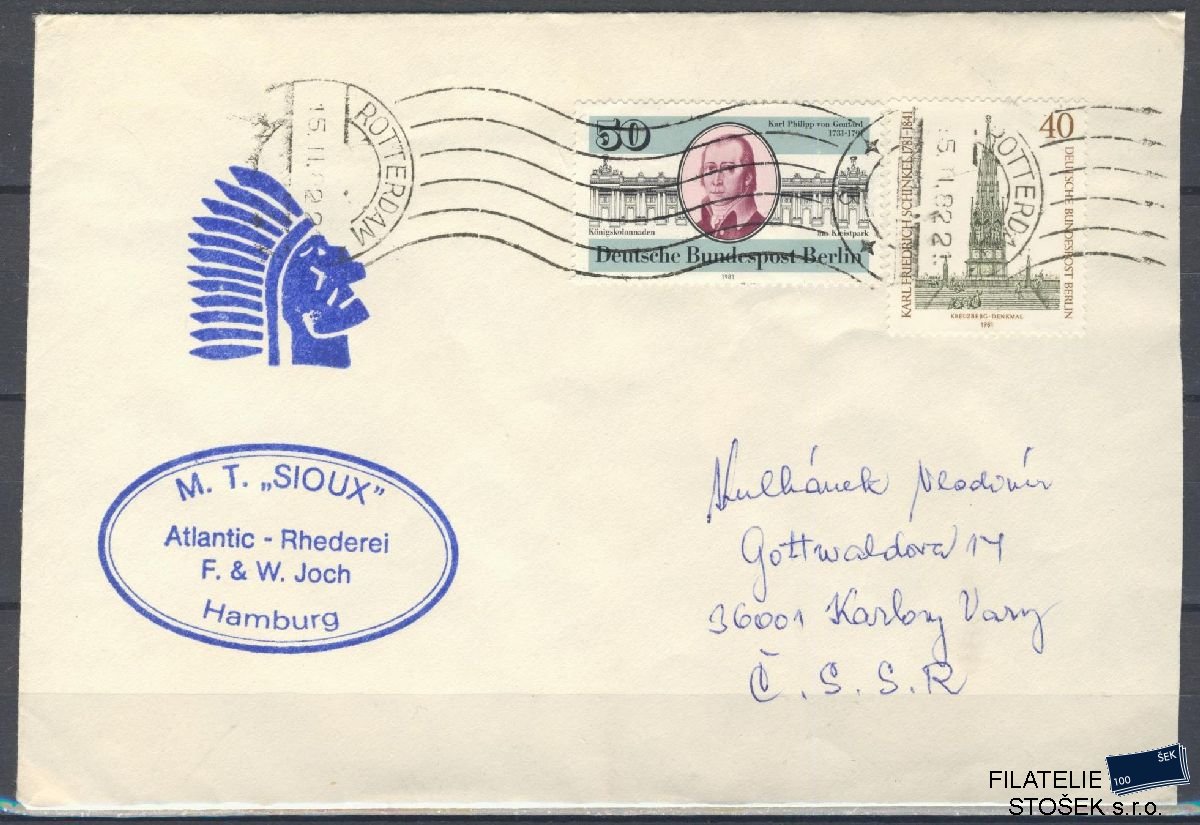 ROTTERDAM
15.11.82 2
50
Karl Philipp von Gontard
1731-1791
Königskolonnaden
am Kleistpark
Deutsche Bundespost Berlin
1981
KARL FRIEDRICH SCHINKEL 1781-1841
40
DEUTSCHE BUNDESPOST BERLIN
KREUZBERG-DENKMAL
1981
ROTTERDA
15.11.82 2
M. T. „SIOUX”
Atlantic - Rhederei
F. & W. Joch
Hamburg
Kulhánek Vladimír
Gottwaldova 14
36001 Karlovy Vary
Č. S. S. R
FILATELIE
STOŠEK s.r.o.
100
ŠEK